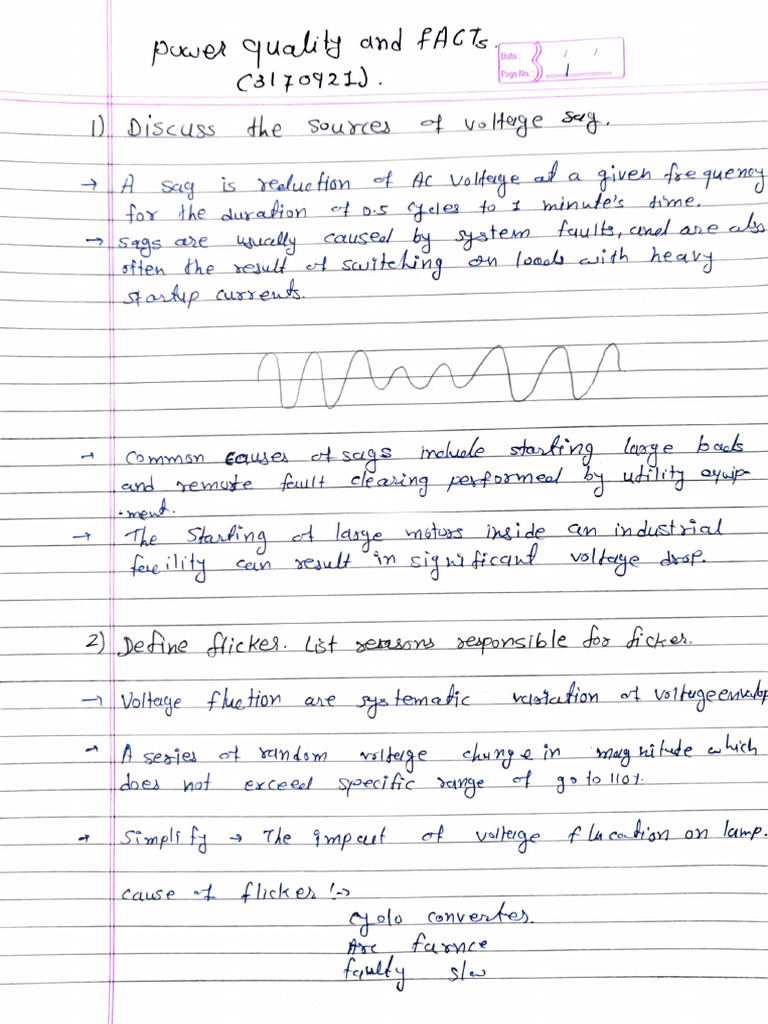 Power quality and FACTs.
(3170921).
Date : / /
Page No. : 1
1) Discuss the sources of voltage sag.
→ A sag is reduction of AC voltage at a given frequency
for the duration of 0.5 cycles to 1 minute's time.
→ sags are usually caused by system faults, and are also
often the result of switching on loads with heavy
startup currents.
→ Common causes of sags include starting large loads
and remote fault clearing performed by utility equip-
-ment.
→ The starting of large motors inside an industrial
facility can result in significant voltage drop.
2) Define flicker. List reasons responsible for ficker.
→ Voltage fluction are systematic variation of voltage envelop
→ A series of random voltage change in magnitude which
does not exceed specific range of 90 to 110%.
→ Simplify → The impact of voltage flucation on lamp.
cause of flicker :->
cyclo converter.
Arc furnce
faulty s/w